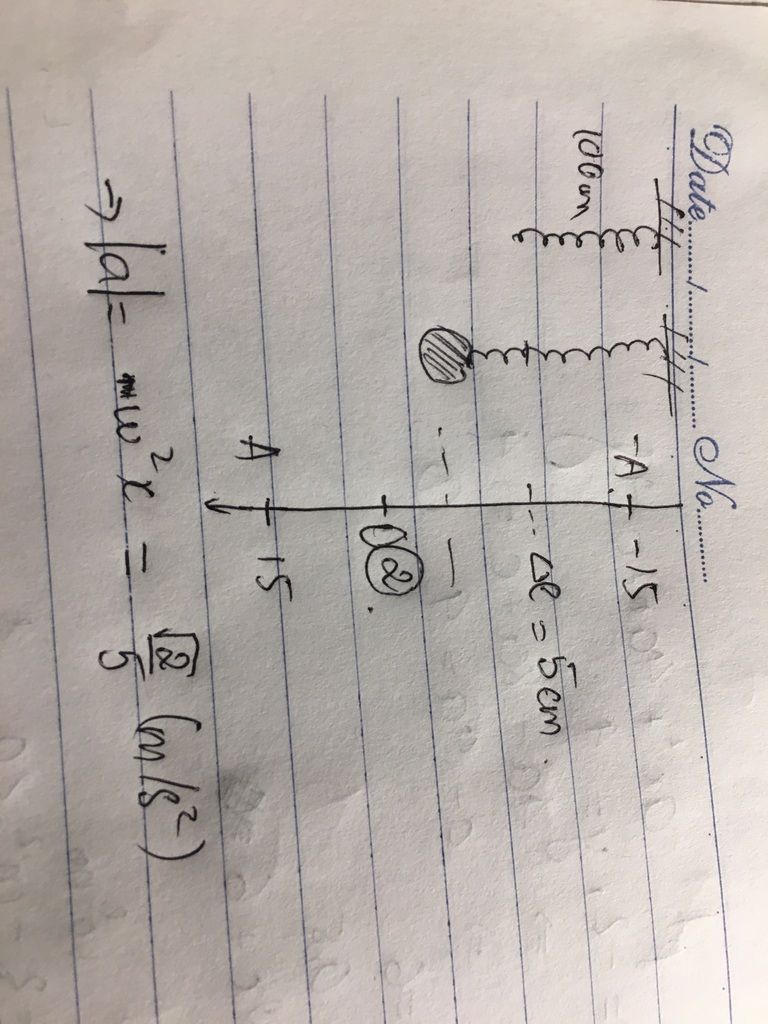 Date......./......./....... No...........
100cm
-A -15
Δl = 5cm.
O ②.
A 15
⇒ |a| = ω²x = √2/5 (m/s²)